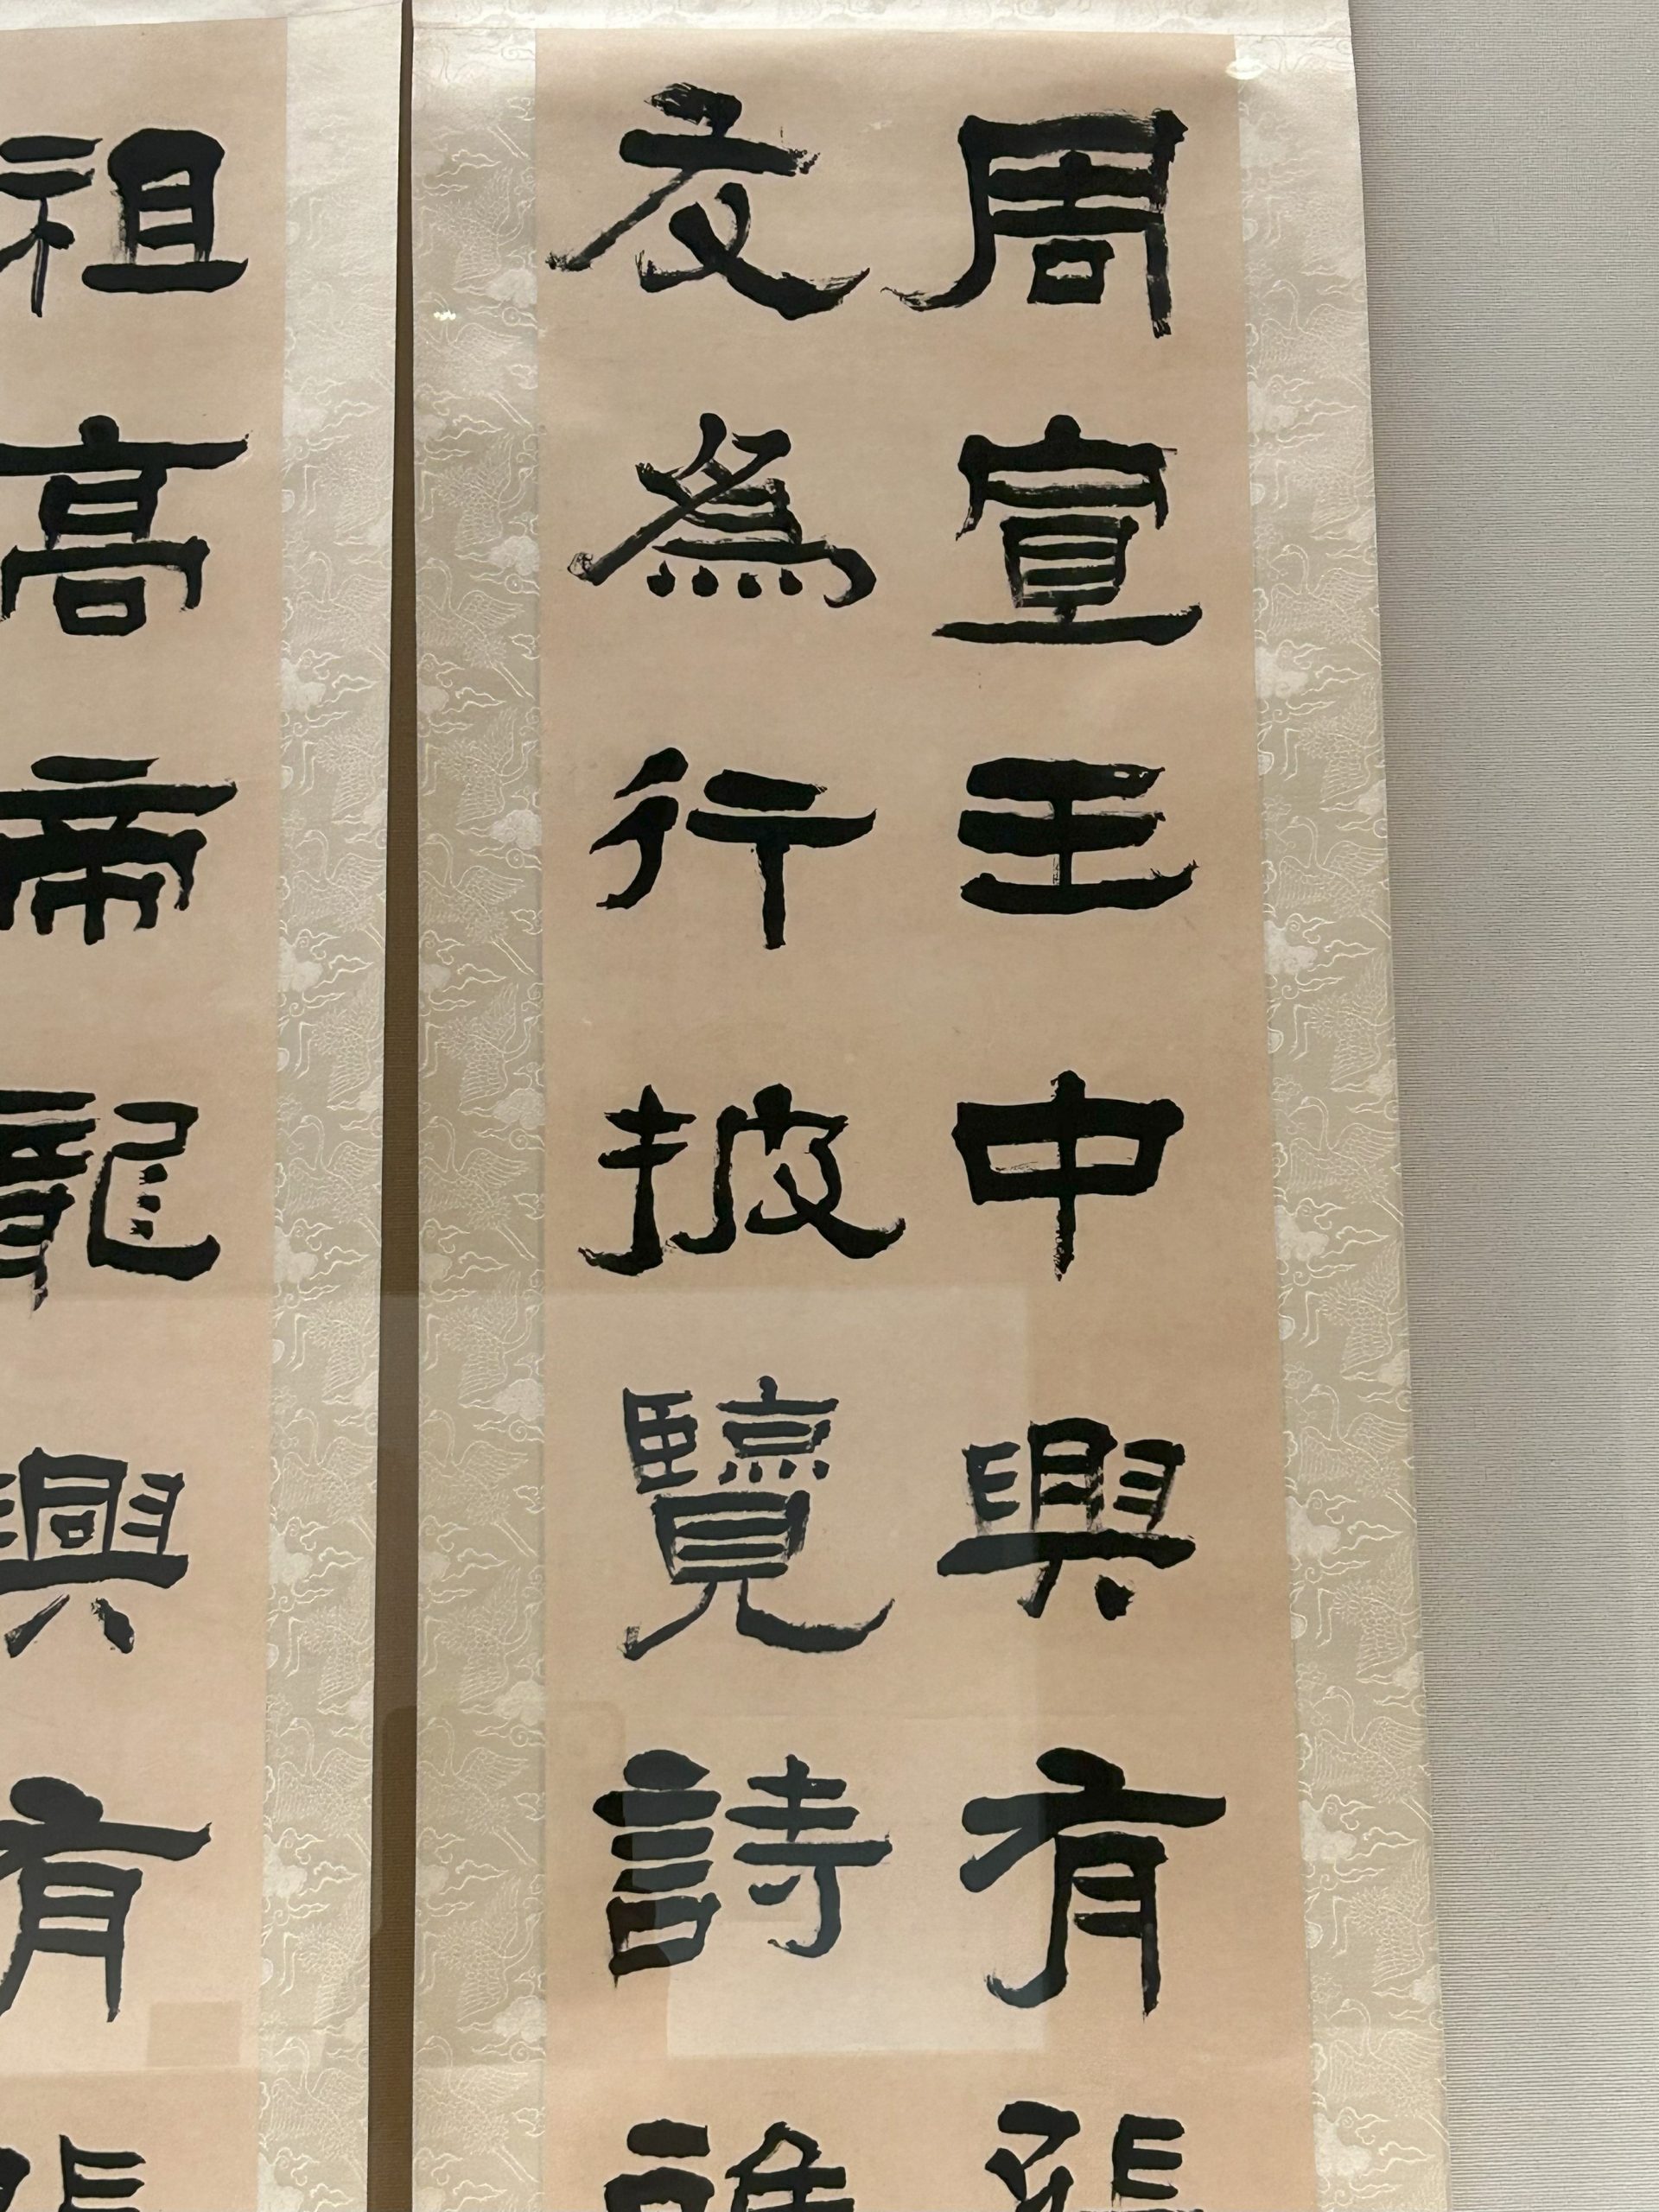 周宣王中興有張
友為行披覽詩雅
祖高帝龍興有張